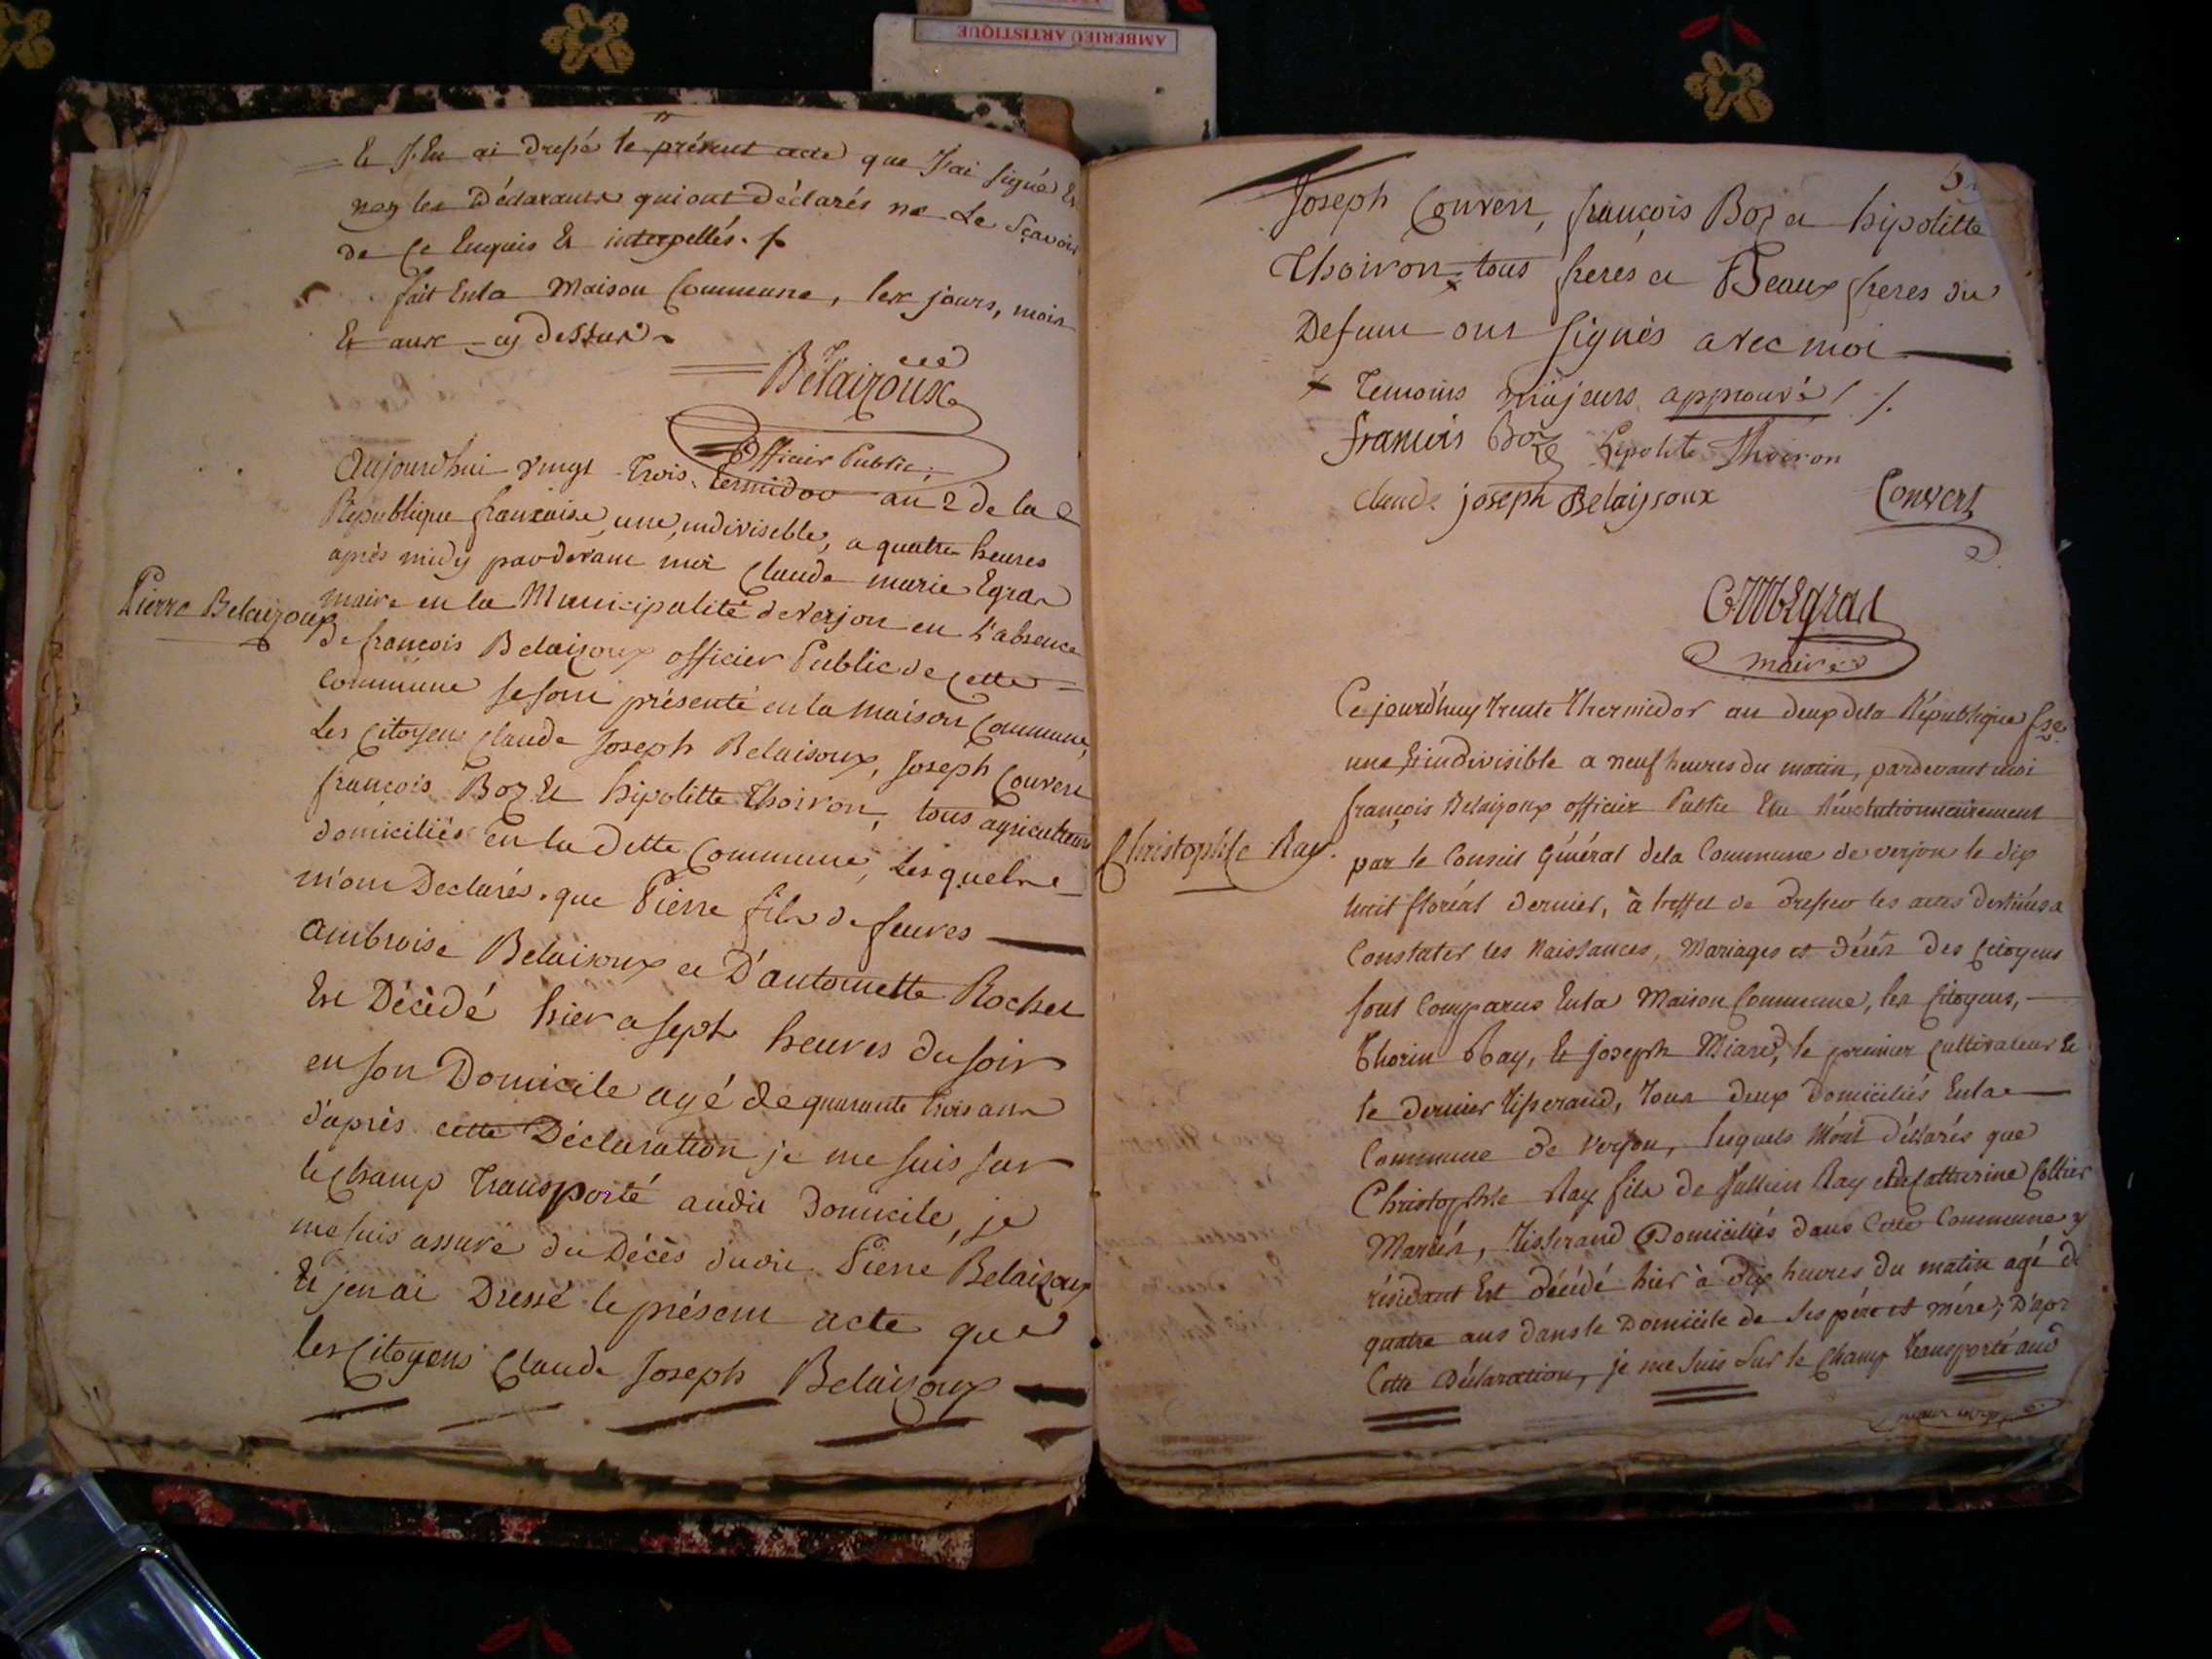 AMBERIEU ARTISTIQUE
Et J'en ai dressé le présent acte que J'ai signé Et
non les Déclarants qui ont Déclarés ne Le Sçavoir
de Ce Enquis Et interpellés. /.
fait En la Maison Commune, les jours, mois
Et ans cy dessus
Belaizoux
Officier Public
Aujourdhui vingt trois termidor an 2 de la
République francaise, une, indivisible, a quatre heures
après midy pardevant moi Claude marie Egraz
maire en la Municipalité de Verjon en L'absence
Pierre Belaizoux
De francois Belaizoux officier Public de cette
Commune se sont présenté en la Maison Commune,
Les Citoyens Claude Joseph Belaisoux, Joseph Convert
françois Boz Et hipolitte Thoiron, tous agriculteurs
domiciliés en la dette Commune, Lesquels
m'ont Declarés que Pierre fils de feuves
Ambroise Belaisoux et D'antoinette Rochet
Est Décédé hier a sept heures du soir
en son Domicile agé de quarante trois ans
d'après cette Déclaration je me suis sur
le Champ Transporté audit Domicile, je
me suis assuré du Décès dudit Pierre Belaizoux
Et j'en ai Dressé le présent acte que
les Citoyens Claude Joseph Belaizoux
Joseph Convert, françois Boz et hipolitte
Thoiron x tous freres et Beaux freres du
Defunt ont signés avec moi
x Temoins majeurs approuvé /.
francois Boz Hipolite Thoiron
claude joseph Belaysoux Convert
C M Egraz
maire
Ce jourd'huy trente thermidor an deux de la République fse
une Et indivisible a neuf heures du matin, pardevant moi
françois Belaizoux officier Public Elu Révolutionnairement
Christophle Ray.
par le Conseil Général de la Commune de verjon le dix
huit floréal dernier, à l'effet de dresser les actes destinés a
Constater les Naissances, Mariages et Décès des Citoyens
sont Comparus En la Maison Commune, les Citoyens,
Thorin Ray, Et Joseph Miard, le premier Cultivateur Et
le dernier Tisserand, Tous deux Domiciliés En la
Commune de Verjon, lesquels M'ont déclarés que
Christophle Ray fils de Jullien Ray et de Catherine Collier
Mariés, Tisserand Domiciliés dans Cette Commune y
résidant Est décédé hier à dix heures du matin agé de
quatre ans dans le Domicile de ses pére et mére; D'apr
Cette Déclaration, je me suis sur le Champ transporté aud